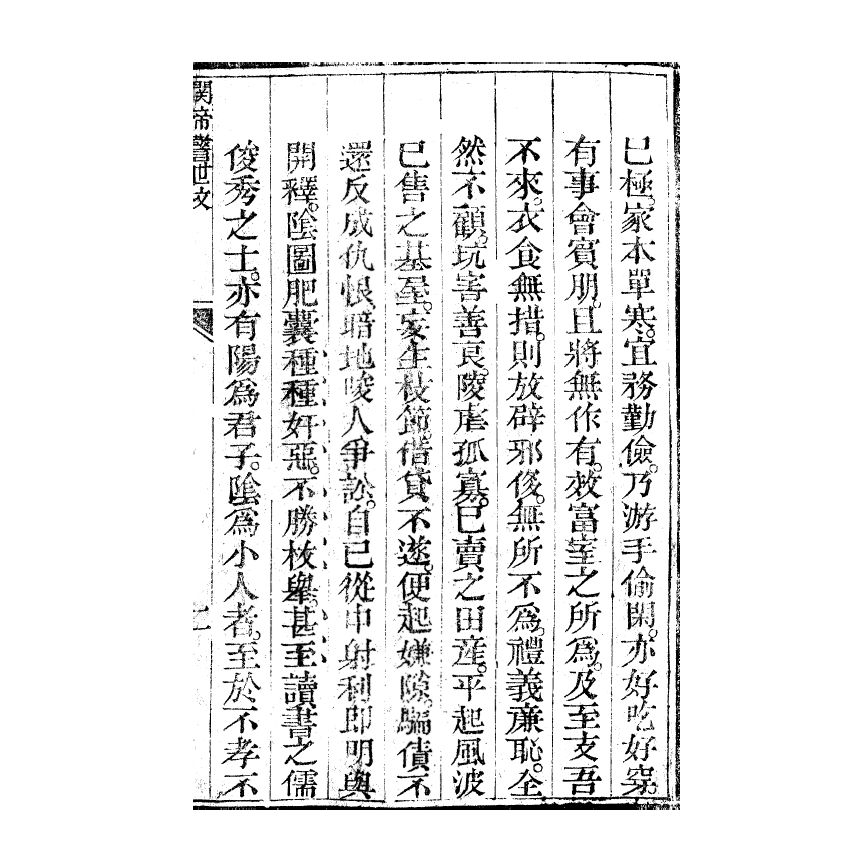 已極。家本單寒。宜務勤儉。乃游手偷閑。亦好吃好穿。
有事會賓朋。且將無作有。效富室之所為。及至支吾
不來。衣食無措。則放辟邪侈。無所不為。禮義廉恥。全
然不顧。坑害善良。陵虐孤寡。已賣之田產。平起風波
已售之基屋。妄生枝節。借貸不遂。便起嫌隙。騙債不
還反成仇恨。暗地唆人爭訟。自己從中射利即明與
開釋。陰圖肥囊種種奸惡。不勝枚舉。甚至讀書之儒
俊秀之士。亦有陽為君子。陰為小人者。至於不孝不
關帝警世文
二